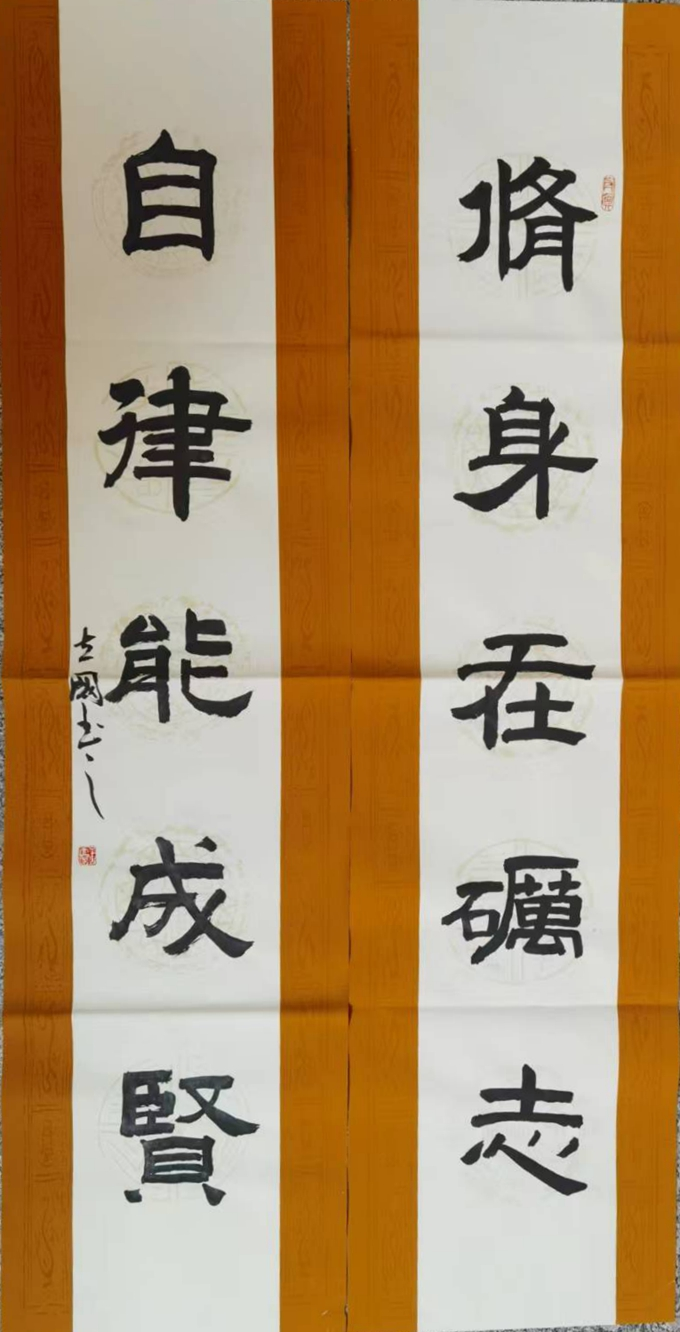 脩身在礪志
自律能成賢
立國书之